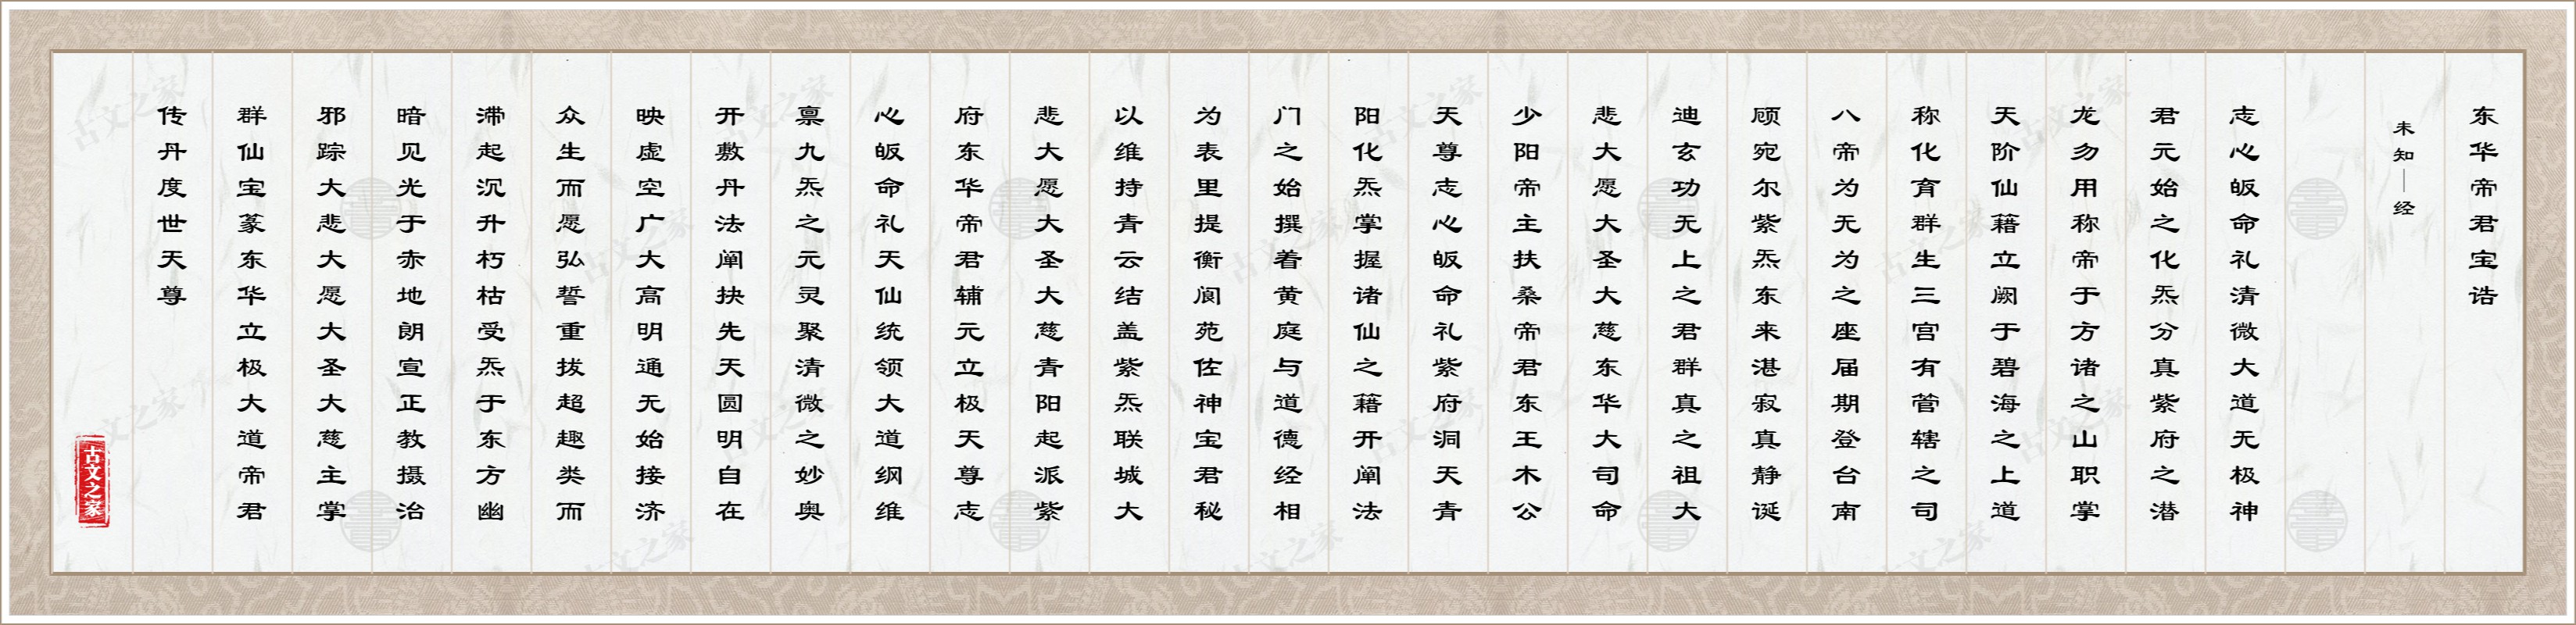 东华帝君宝诰
未知—经
志心皈命礼清微大道无极神
君元始之化炁分真紫府之潜
龙勿用称帝于方诸之山职掌
天阶仙藉立阙于碧海之上道
称化育群生三宫有菅辖之司
八帝为无为之座届期登台南
顾宛尔紫炁东来湛寂真静诞
迪玄功无上之君群真之祖大
悲大愿大圣大慈东华大司命
少阳帝主扶桑帝君东王木公
天尊志心皈命礼紫府洞天青
阳化炁掌握诸仙之藉开阐法
门之始撰着黄庭与道德经相
为表里提衡阆苑佐神宝君秘
以维持青云结盖紫炁联城大
悲大愿大圣大慈青阳起派紫
府东华帝君辅元立极天尊志
心皈命礼天仙统领大道纲维
禀九炁之元灵聚清微之妙奥
开敷丹法阐抉先天圆明自在
映虚空广大高明通无始接济
众生而愿弘誓重拔超趣类而
滞起沉升朽枯受炁于东方幽
暗见光于赤地朗宣正教摄治
邪踪大悲大愿大圣大慈主掌
群仙宝篆东华立极大道帝君
传丹度世天尊
古文之家